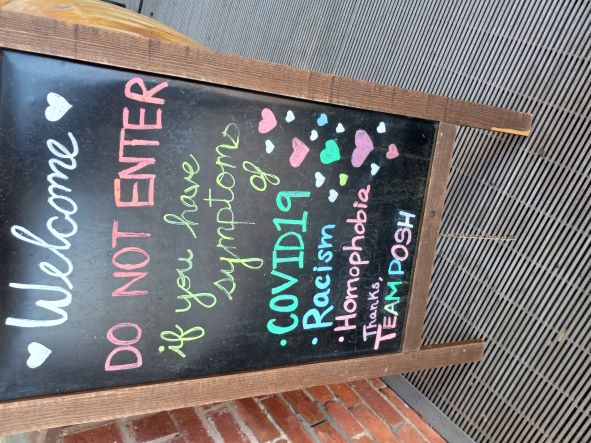 Welcome
DO NOT ENTER
if you have
symptoms
of
· COVID19
· Racism
· Homophobia
Thanks,
TEAM POSH